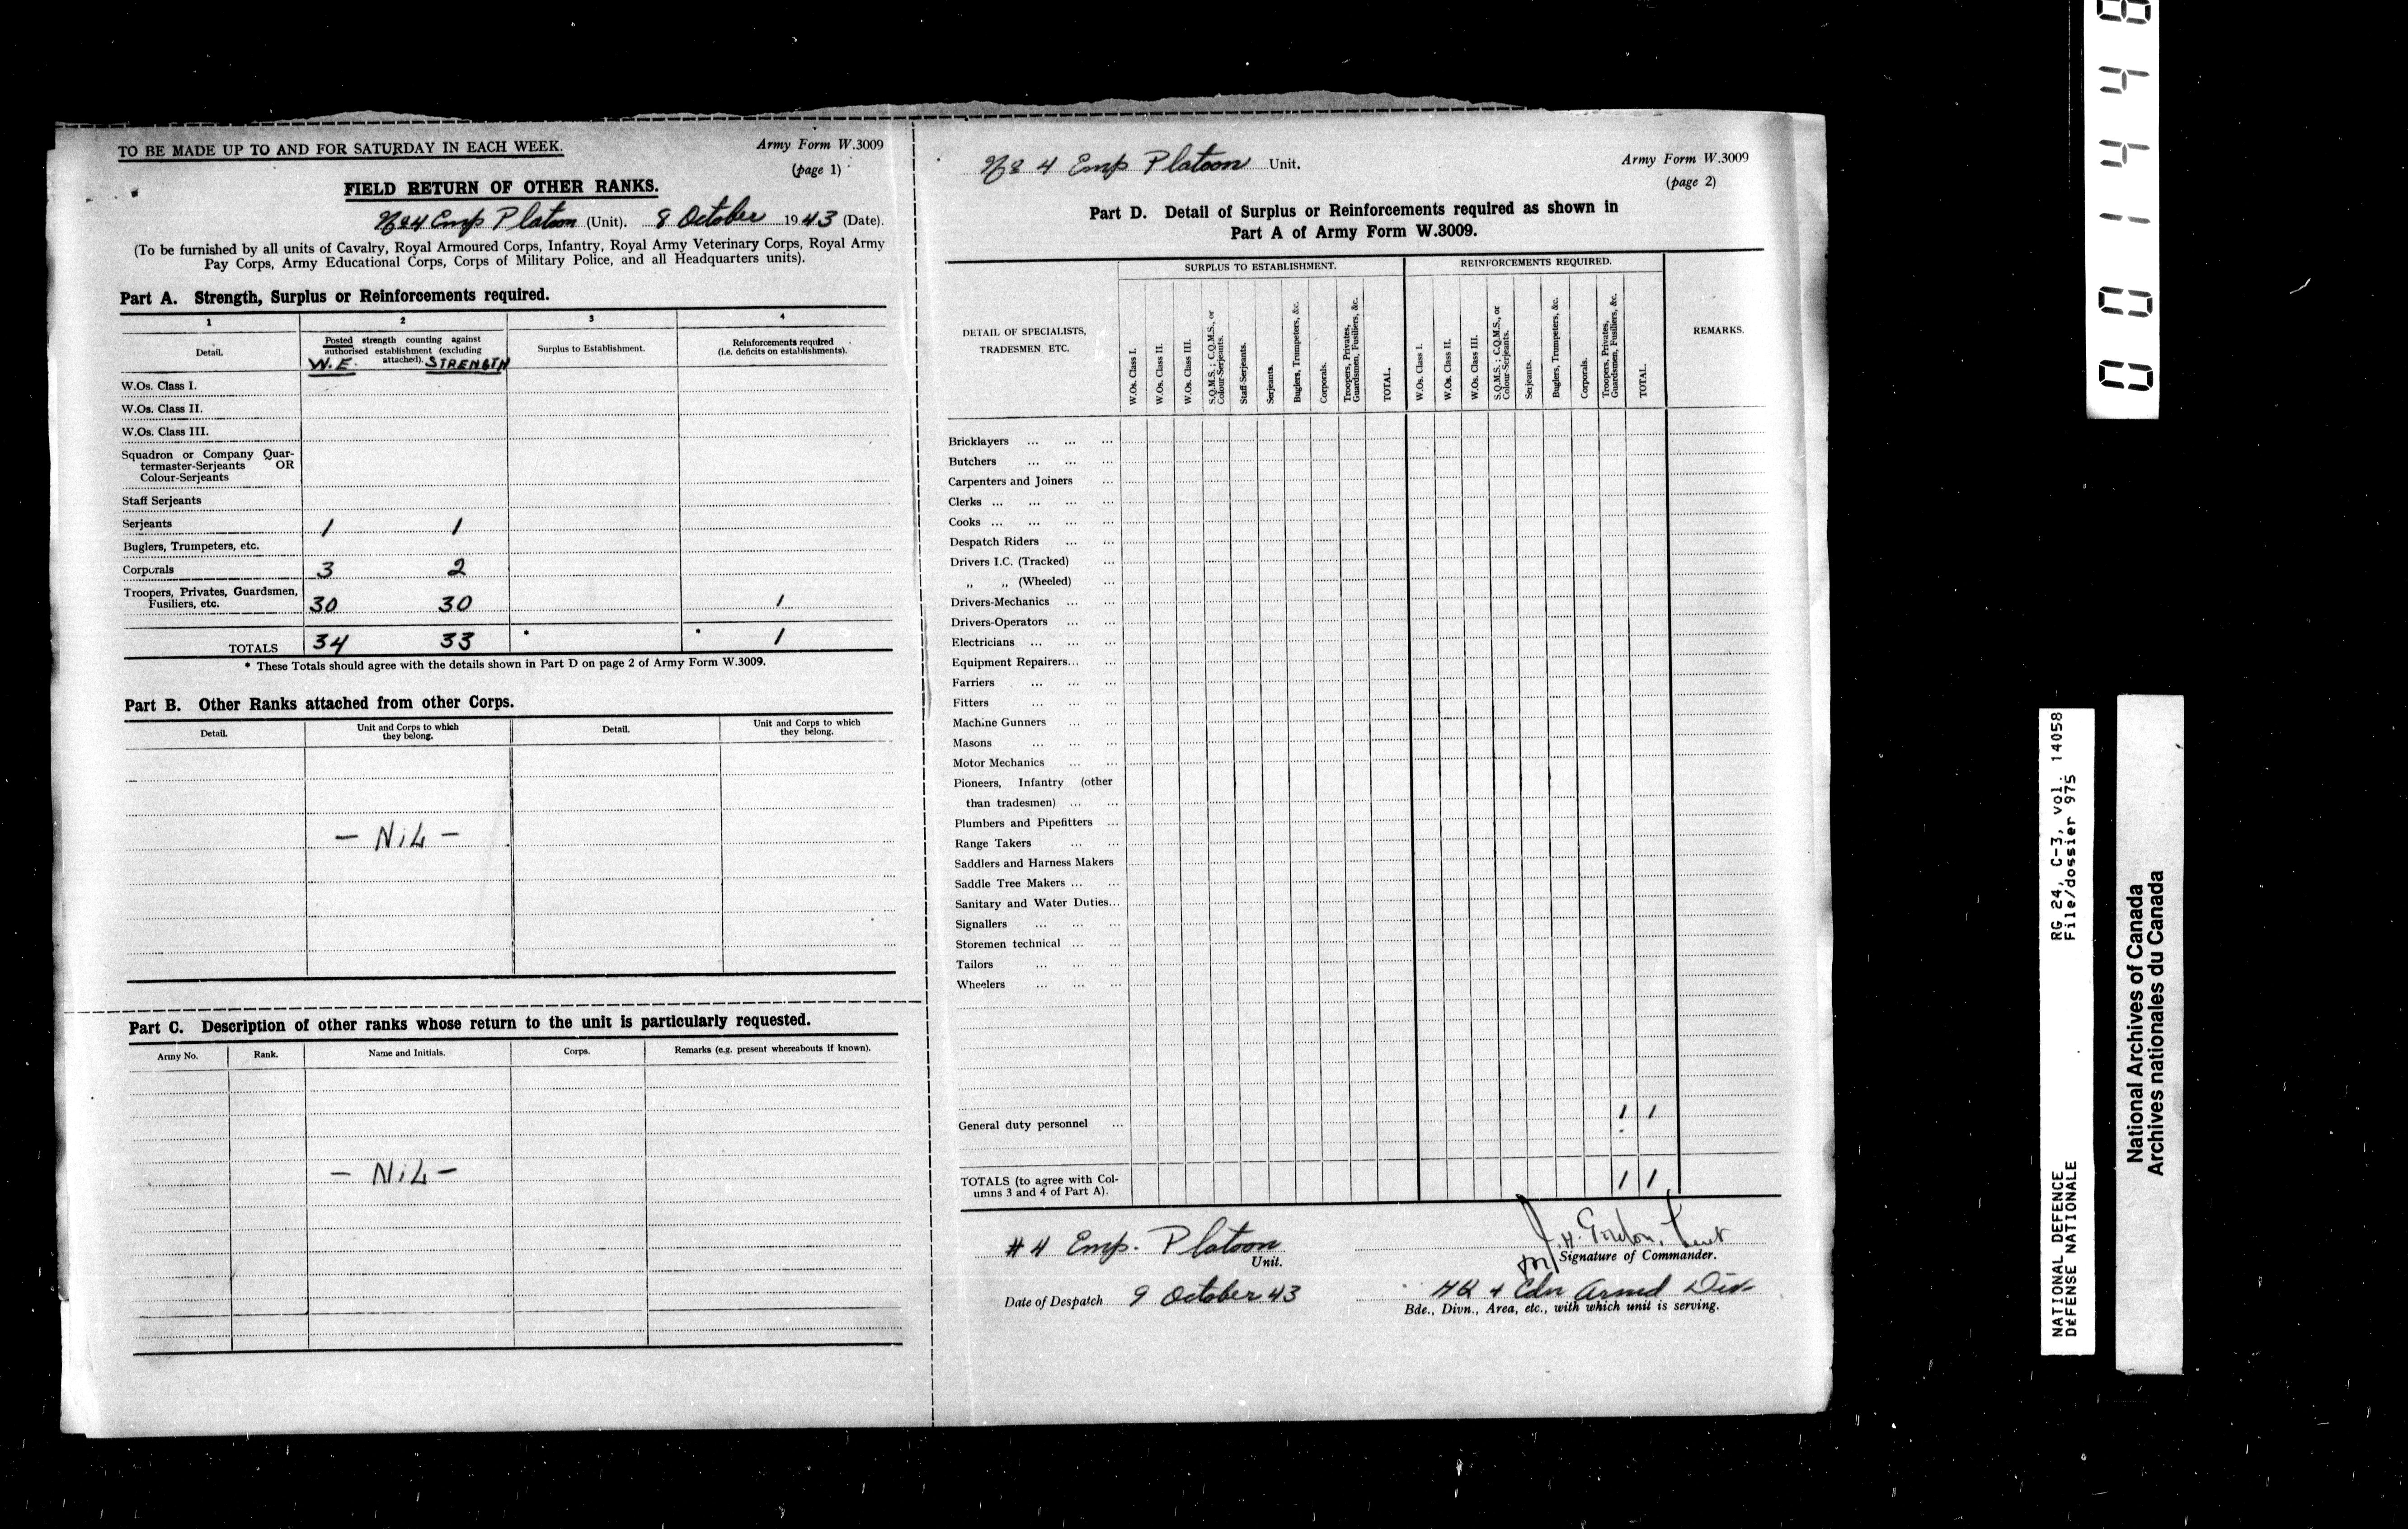 TO BE MADE UP TO AND FOR SATURDAY IN EACH WEEK.
Army Form W.3009
(page 1)
FIELD RETURN OF OTHER RANKS.
4 Emp Platoon (Unit). 8 October 1943 (Date).
(To be furnished by all units of Cavalry, Royal Armoured Corps, Infantry, Royal Army Veterinary Corps, Royal Army
Pay Corps, Army Educational Corps, Corps of Military Police, and all Headquarters units).
Part A. Strength, Surplus or Reinforcements required.
1 2 3 4
Detail.
Posted strength counting against
authorised establishment (excluding
attached).
W.E. STRENGTH
Surplus to Establishment.
Reinforcements required
(i.e. deficits on establishments).
W.Os. Class I.
W.Os. Class II.
W.Os. Class III.
Squadron or Company Quar-
termaster-Serjeants OR
Colour-Serjeants
Staff Serjeants
Serjeants 1 1
Buglers, Trumpeters, etc.
Corporals 3 2
Troopers, Privates, Guardsmen,
Fusiliers, etc. 30 30 1
TOTALS 34 33 * * 1
* These Totals should agree with the details shown in Part D on page 2 of Army Form W.3009.
Part B. Other Ranks attached from other Corps.
Detail.
Unit and Corps to which
they belong.
Detail.
Unit and Corps to which
they belong.
— NiL —
Part C. Description of other ranks whose return to the unit is particularly requested.
Army No. Rank. Name and Initials. Corps. Remarks (e.g. present whereabouts if known).
— NiL —
4 Emp Platoon Unit.
Army Form W.3009
(page 2)
Part D. Detail of Surplus or Reinforcements required as shown in
Part A of Army Form W.3009.
DETAIL OF SPECIALISTS,
TRADESMEN, ETC.
SURPLUS TO ESTABLISHMENT.
W.Os. Class I.
W.Os. Class II.
W.Os. Class III.
S.Q.M.S.; C.Q.M.S., or
Colour-Serjeants.
Staff-Serjeants.
Serjeants.
Buglers, Trumpeters, &c.
Corporals.
Troopers, Privates,
Guardsmen, Fusiliers, &c.
TOTAL.
REINFORCEMENTS REQUIRED.
W.Os. Class I.
W.Os. Class II.
W.Os. Class III.
S.Q.M.S.; C.Q.M.S., or
Colour-Serjeants.
Serjeants.
Buglers, Trumpeters, &c.
Corporals.
Troopers, Privates,
Guardsmen, Fusiliers, &c.
TOTAL.
REMARKS.
Bricklayers ... ... ...
Butchers ... ... ...
Carpenters and Joiners ...
Clerks ... ... ... ...
Cooks ... ... ... ...
Despatch Riders ... ...
Drivers I.C. (Tracked) ...
„ „ (Wheeled) ...
Drivers-Mechanics ... ...
Drivers-Operators ... ...
Electricians ... ... ...
Equipment Repairers... ...
Farriers ... ... ...
Fitters ... ... ...
Machine Gunners ... ...
Masons ... ... ...
Motor Mechanics ... ...
Pioneers, Infantry (other
than tradesmen) ... ...
Plumbers and Pipefitters ...
Range Takers ... ...
Saddlers and Harness Makers
Saddle Tree Makers ... ...
Sanitary and Water Duties...
Signallers ... ... ...
Storemen technical ... ...
Tailors ... ... ...
Wheelers ... ... ...
General duty personnel ... 1 1
TOTALS (to agree with Col-
umns 3 and 4 of Part A). 1 1
#4 Emp. Platoon
Unit.
J.H. Gordon, Lieut
Signature of Commander.
Date of Despatch 9 October 43
HQ 4 Cdn Armd Div
Bde., Divn., Area, etc., with which unit is serving.
NATIONAL DEFENCE RG 24, C-3, vol. 14058
DéFENSE NATIONALE File/dossier 975
National Archives of Canada
Archives nationales du Canada
001448